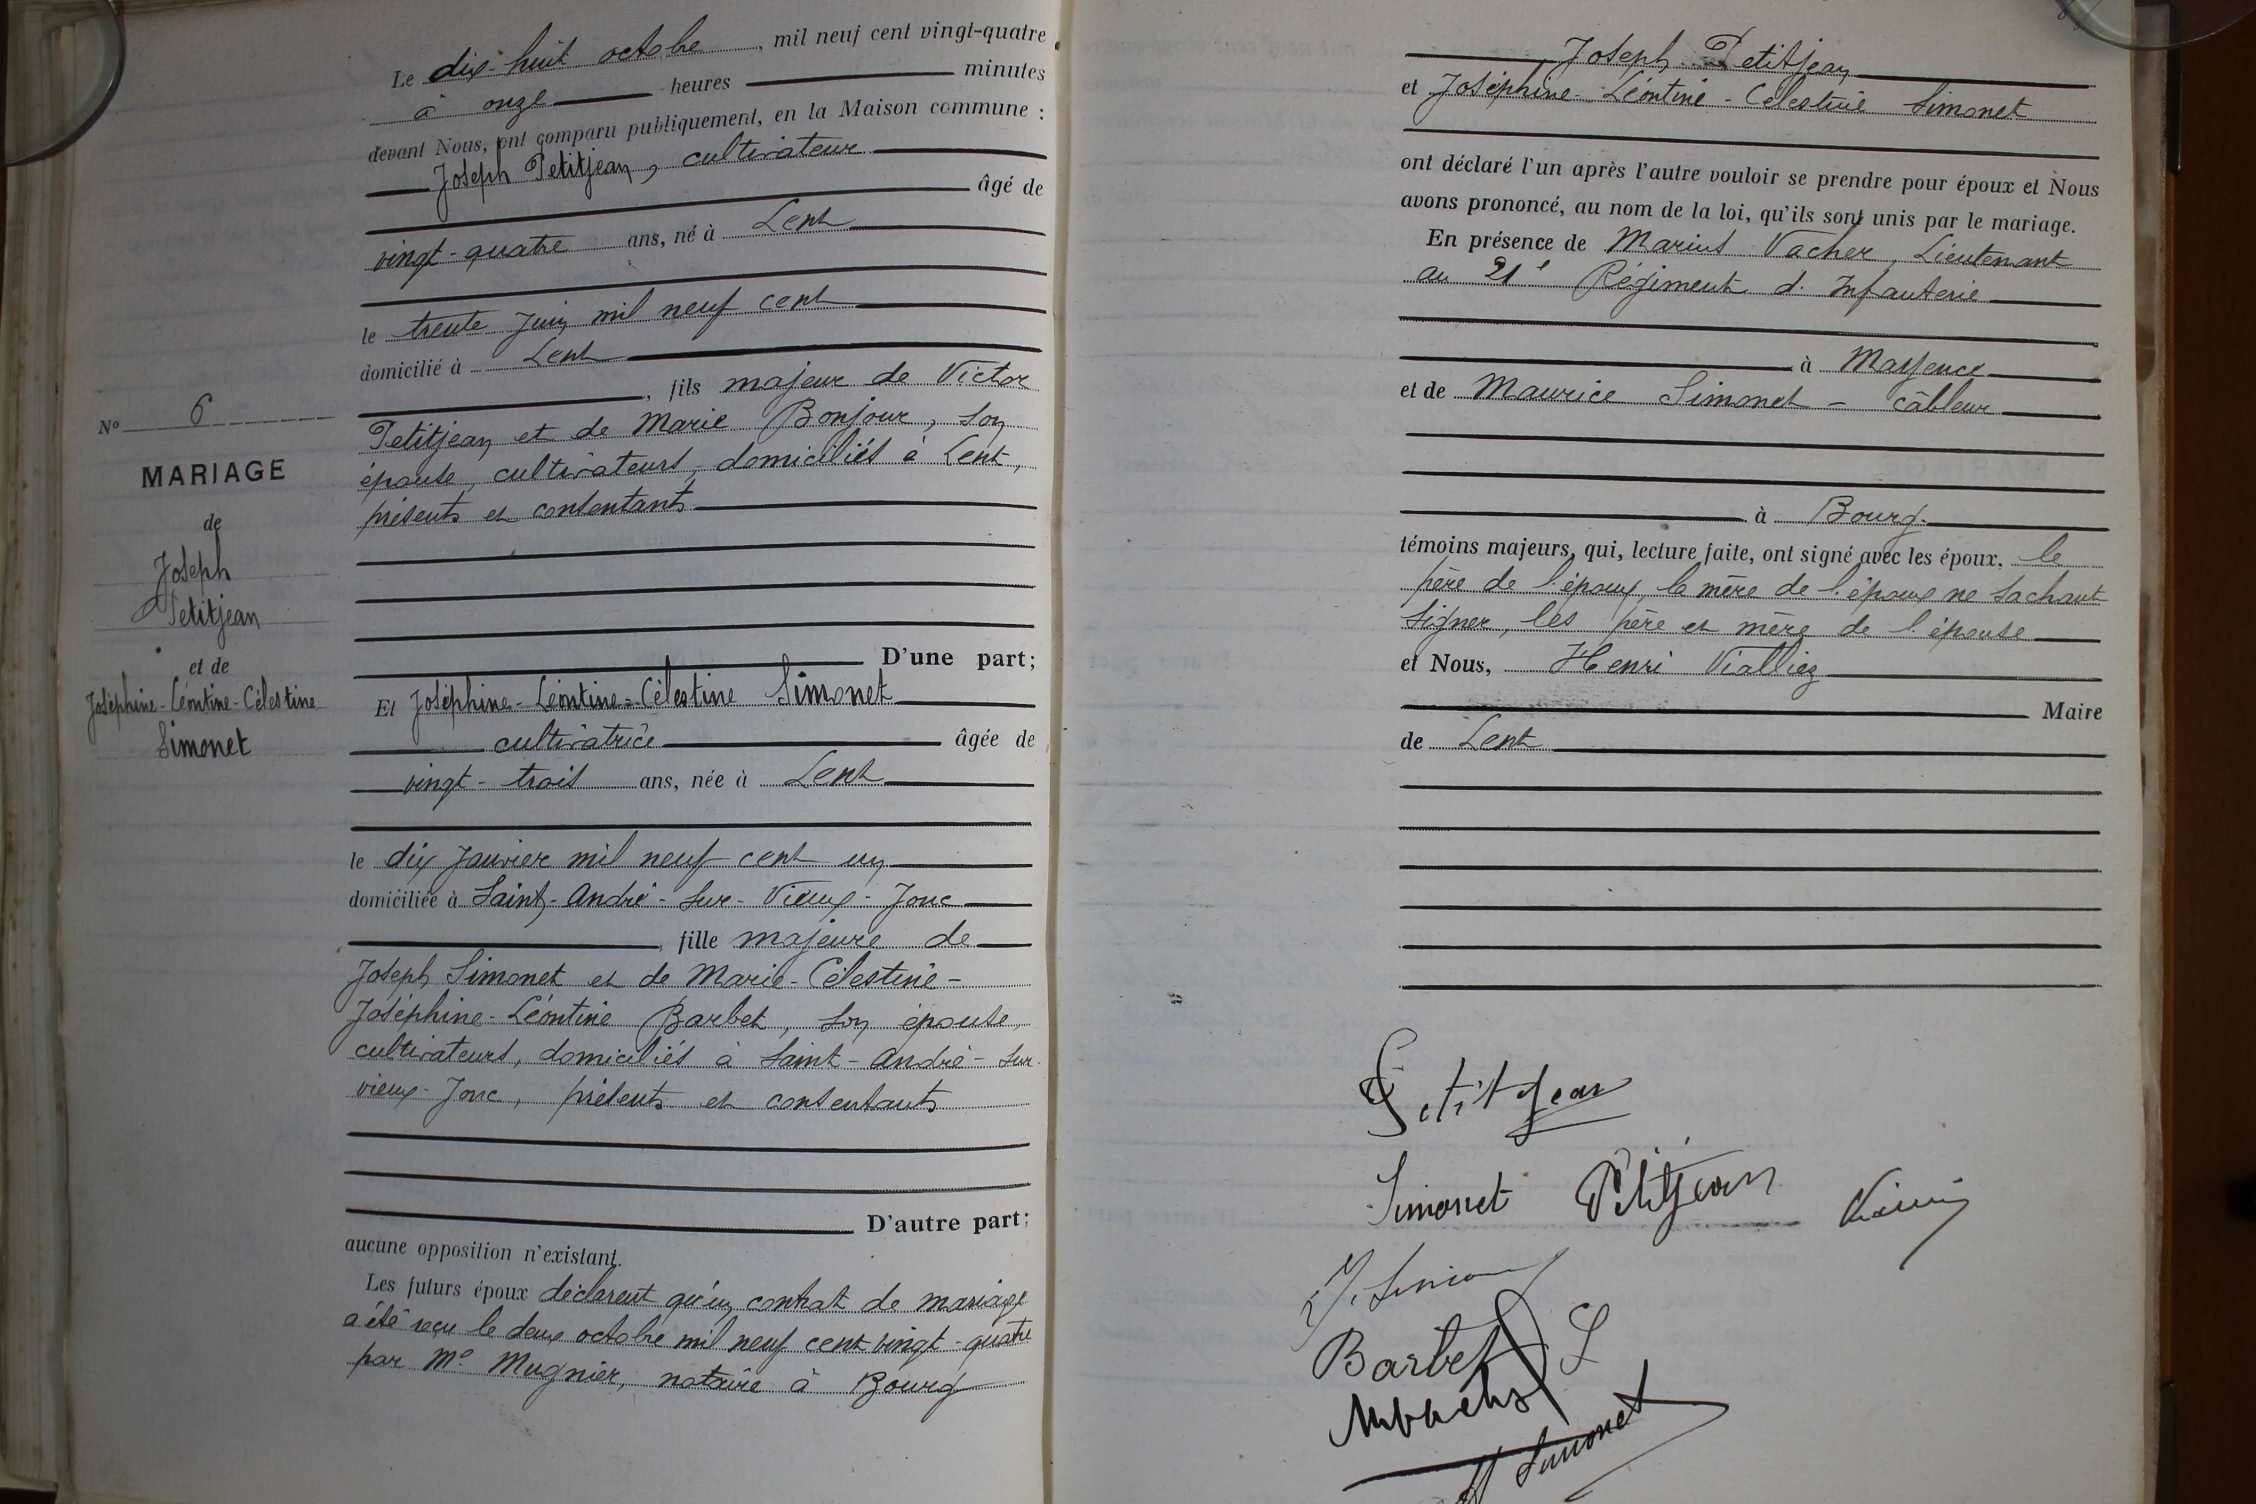 Le dix-huit octobre, mil neuf cent vingt-quatre
à onze heures minutes
devant Nous, ont comparu publiquement, en la Maison commune :
Joseph Petitjean, cultivateur
âgé de
vingt-quatre ans, né à Lent
le trente Juin mil neuf cent
domicilié à Lent
, fils majeur de Victor
Petitjean et de Marie Bonjour, son
épouse, cultivateurs, domiciliés à Lent,
présents et consentants
D'une part;
N° 6
MARIAGE
de
Joseph
Petitjean
et de
Joséphine-Léontine-Célestine
Simonet
Et Joséphine-Léontine-Célestine Simonet
cultivatrice âgée de
vingt-trois ans, née à Lent
le dix Janvier mil neuf cent un
domiciliée à Saint-André-sur-Vieux-Jonc
, fille majeure de
Joseph Simonet et de Marie-Célestine-
Joséphine-Léontine Barbet, son épouse,
cultivateurs, domiciliés à Saint-André-sur-
vieux-Jonc, présents et consentants
D'autre part;
aucune opposition n'existant.
Les futurs époux déclarent qu'un contrat de mariage
a été reçu le deux octobre mil neuf cent vingt-quatre
par Me Mugnier, notaire à Bourg
Joseph Petitjean
et Joséphine-Léontine-Célestine Simonet
ont déclaré l'un après l'autre vouloir se prendre pour époux et Nous
avons prononcé, au nom de la loi, qu'ils sont unis par le mariage.
En présence de Marius Vacher, Lieutenant
au 21e Régiment d'Infanterie
à Mayence
et de Maurice Simonet - câbleur
à Bourg.
témoins majeurs, qui, lecture faite, ont signé avec les époux, le
père de l'époux, la mère de l'époux ne sachant
signer, les père et mère de l'épouse
et Nous, Henri Vialliez
Maire
de Lent
Petitjean
Simonet Petitjean
Barbet L
Simonet